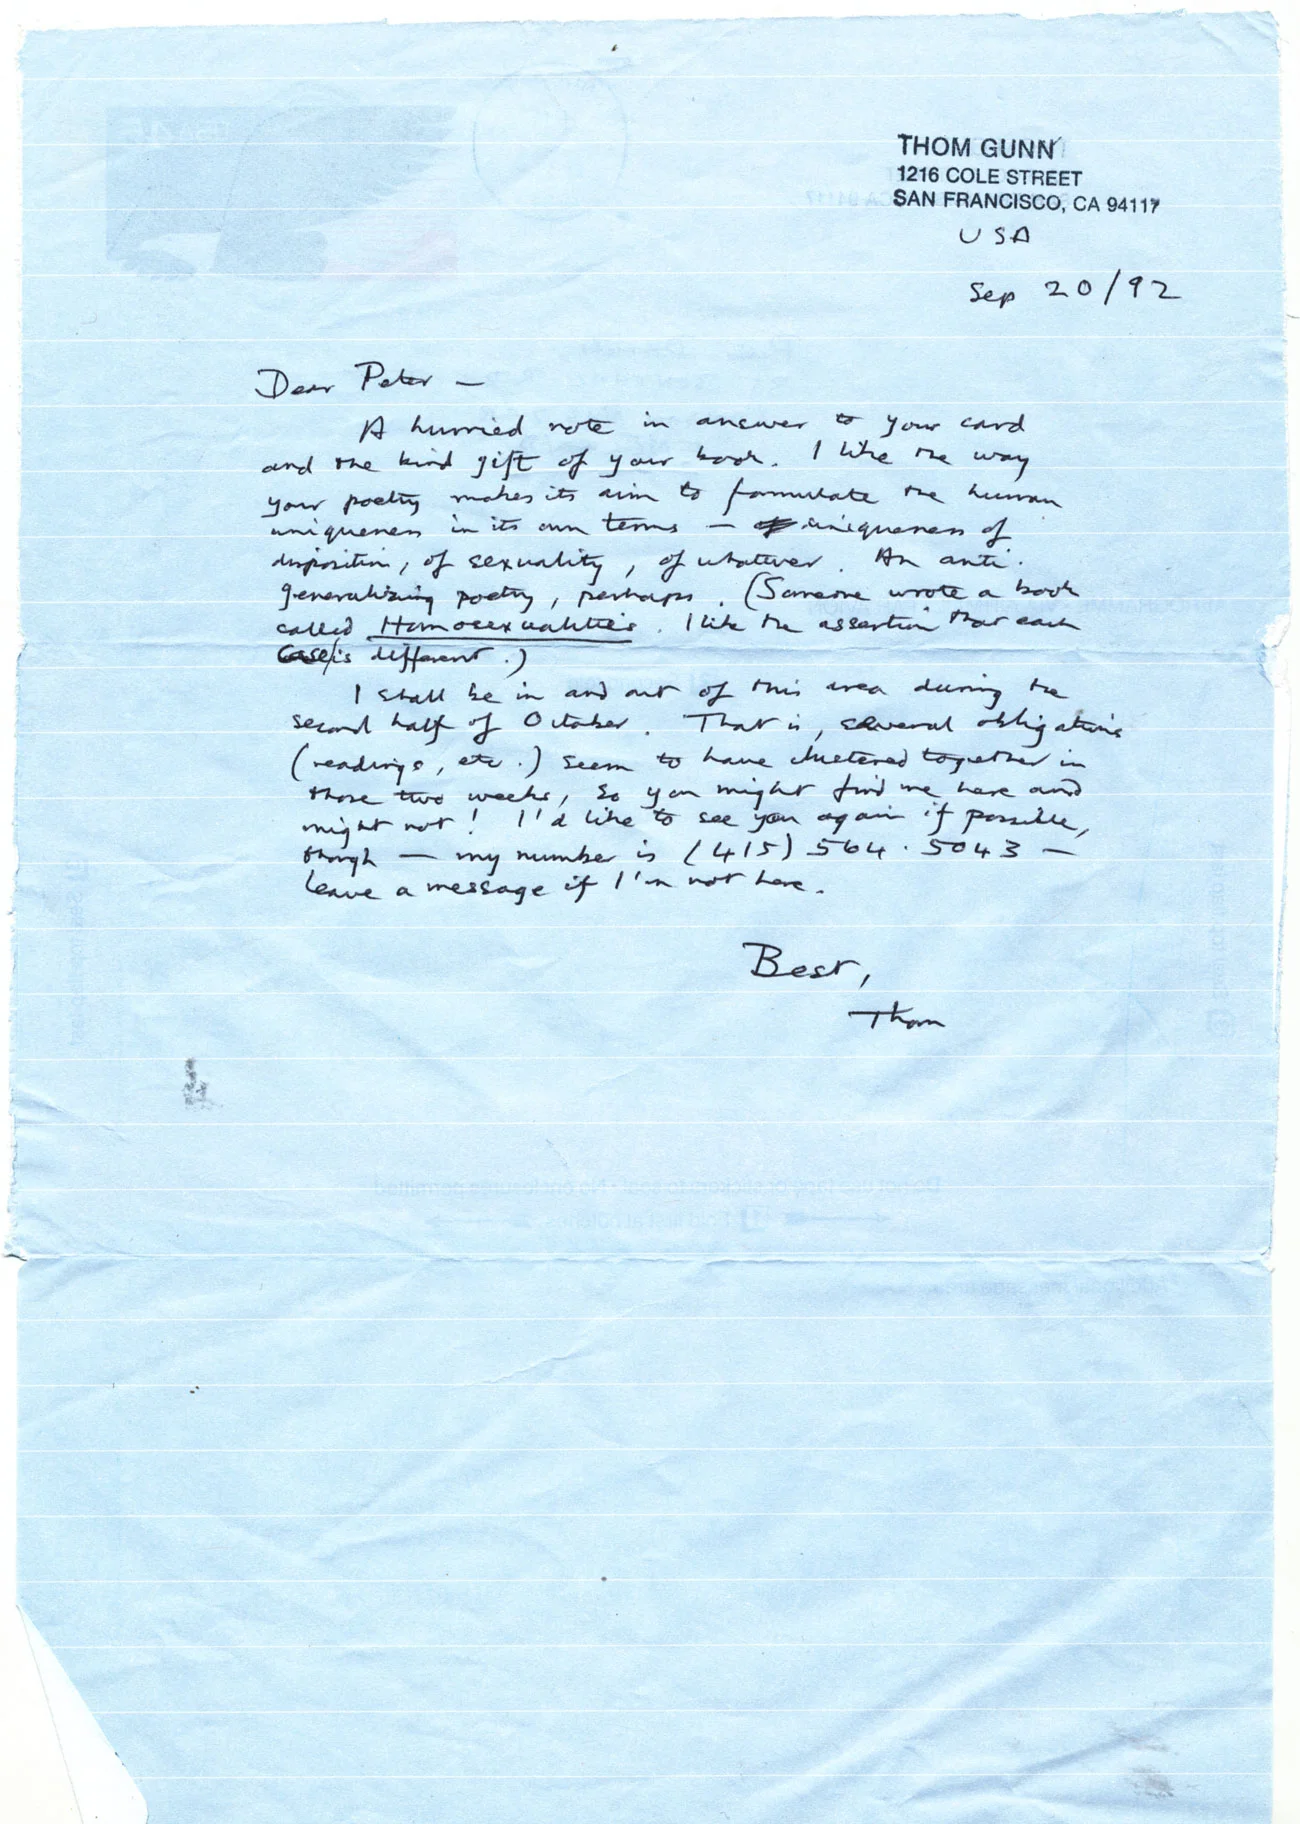 THOM GUNN
1216 COLE STREET
SAN FRANCISCO, CA 94117
USA
Sep 20/92
Dear Peter —
A hurried note in answer to your card
and the kind gift of your book. I like the way
your poetry makes its aim to formulate the human
uniqueness in its own terms — uniqueness of
disposition, of sexuality, of whatever. An anti-
generalizing poetry, perhaps. (Someone wrote a book
called Homosexualities. I like the assertion that each
case is different.)
I shall be in and out of this area during the
second half of October. That is, several obligations
(readings, etc.) seem to have clustered together in
those two weeks, so you might find me here and
might not! I'd like to see you again if possible,
though — my number is (415) 564.5043 —
leave a message if I'm not here.
Best,
Thom